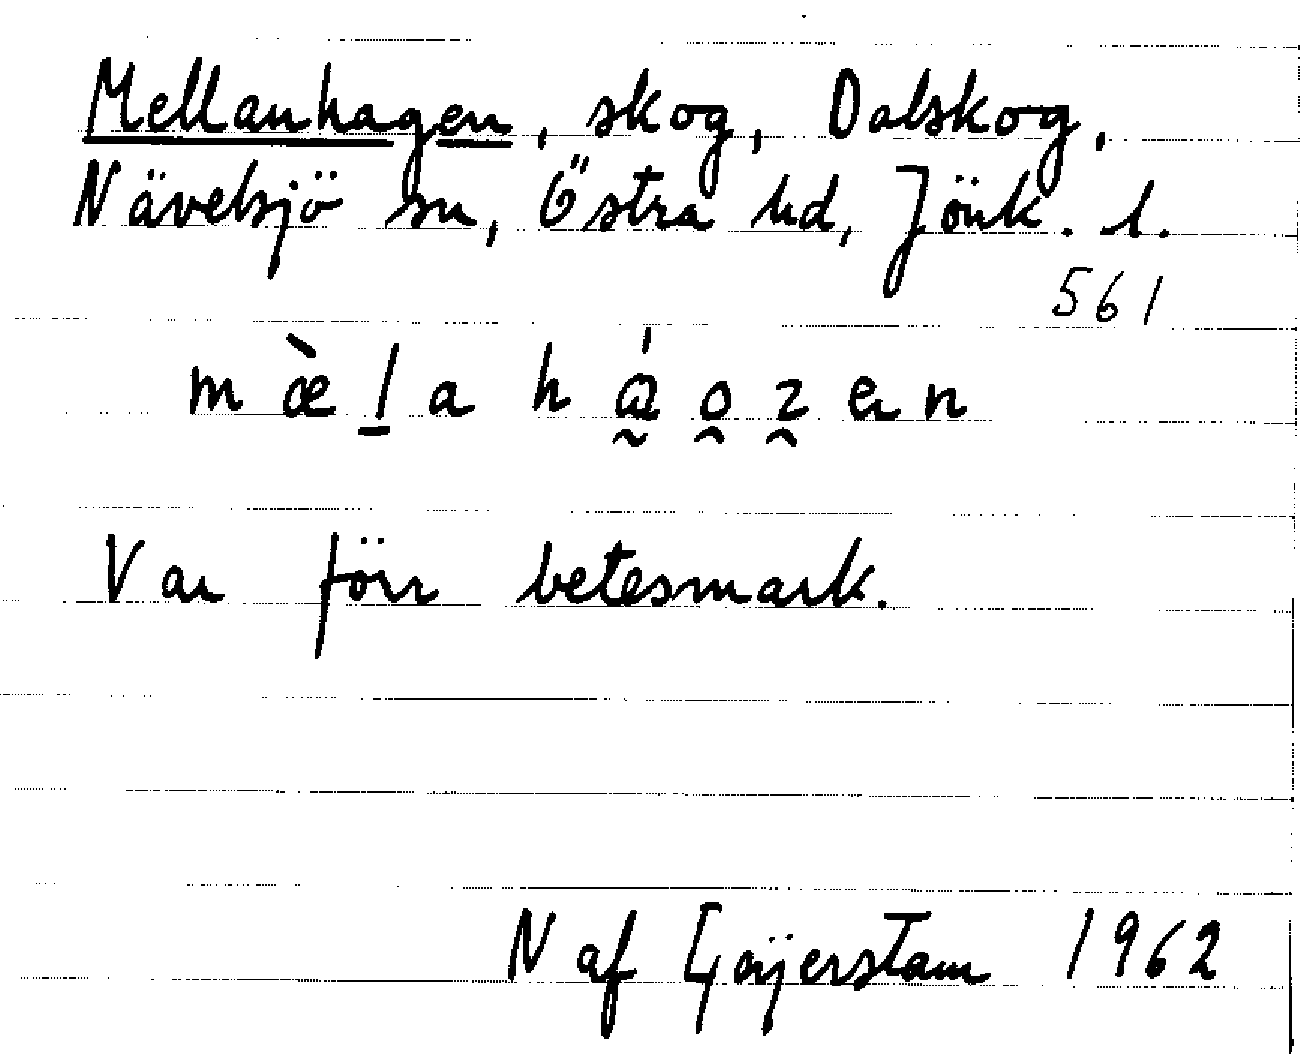 Mellanhagen, skog, Dalskog,
Nävelsjö sn, Östra hd, Jönk. l.
561
Var förr betesmark.
N af Geijerstam 1962